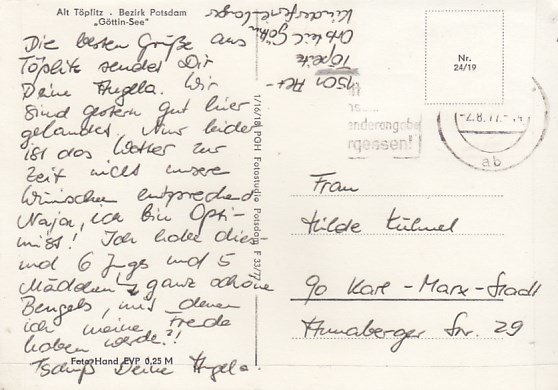 Alt Töplitz · Bezirk Potsdam
„Göttin-See"
Die besten Grüße aus
Töplitz sendet Dir
Deine Angela. Wir
sind gestern gut hier
gelandet. Nur leider
ist das Wetter zur
Zeit nicht unseren
Wünschen entsprechend
Naja, ich bin Opti-
mist! Ich habe dies-
mal 6 Jungs und 5
Mädchen, ganz schöne
Bengels, mit denen
ich meine Freude
haben werde?!
Tschüß Deine Angela.
Foto-Hand EVP 0,25 M
1/16/18 POH Fotostudio Potsdam F 33/77
1501 Alt-
Töplitz
Ortsteil Göttin
Kinderferienlager
Nr.
24/19
-2.8.77.-
enderangabe
rgessen!
ab
Frau
Hilde Kühnel
90 Karl-Marx-Stadt
Annaberger Str. 29